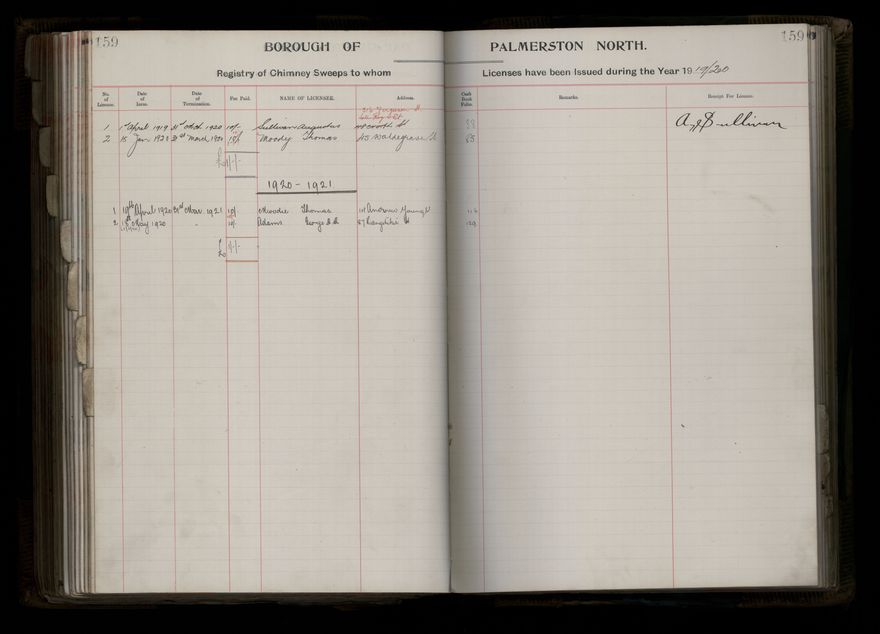 159 BOROUGH OF PALMERSTON NORTH. 159
Registry of Chimney Sweeps to whom Licenses have been Issued during the Year 19 19/20
No. of License. Date of Issue. Date of Termination. Fee Paid. NAME OF LICENSEE. Address. Cash Book Folio. Remarks. Receipt For License.
1 1st April 1919 31st March 1920 10/- Sullivan Augustus 38 A Sullivan
2 15 Jan 1920 31st March 1920 Moody Thomas 85
1920 - 1921
1 19th April 1920 31st Mar. 1921 10/- Moodie Thomas 111 Andrew Young St 116
2 May 1920 10/- Adams George 87 Rangitikei St 129